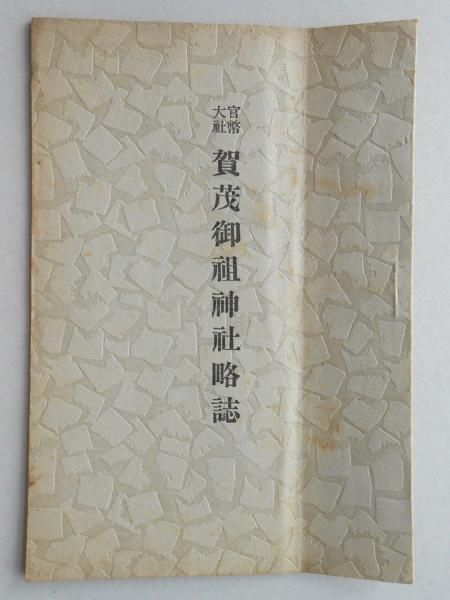 官幣
大社
賀茂御祖神社略誌